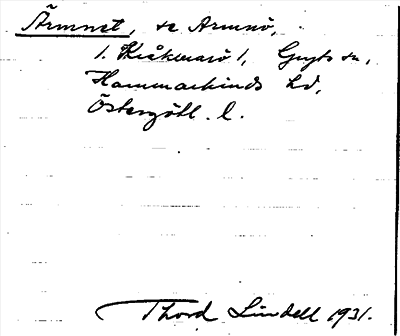 Ärmnet, se Armnö,
1. Kråkmarö 1, Gryts sn,
Hammarkinds hd,
Östergötl. l.
Thord Lindell 1931.